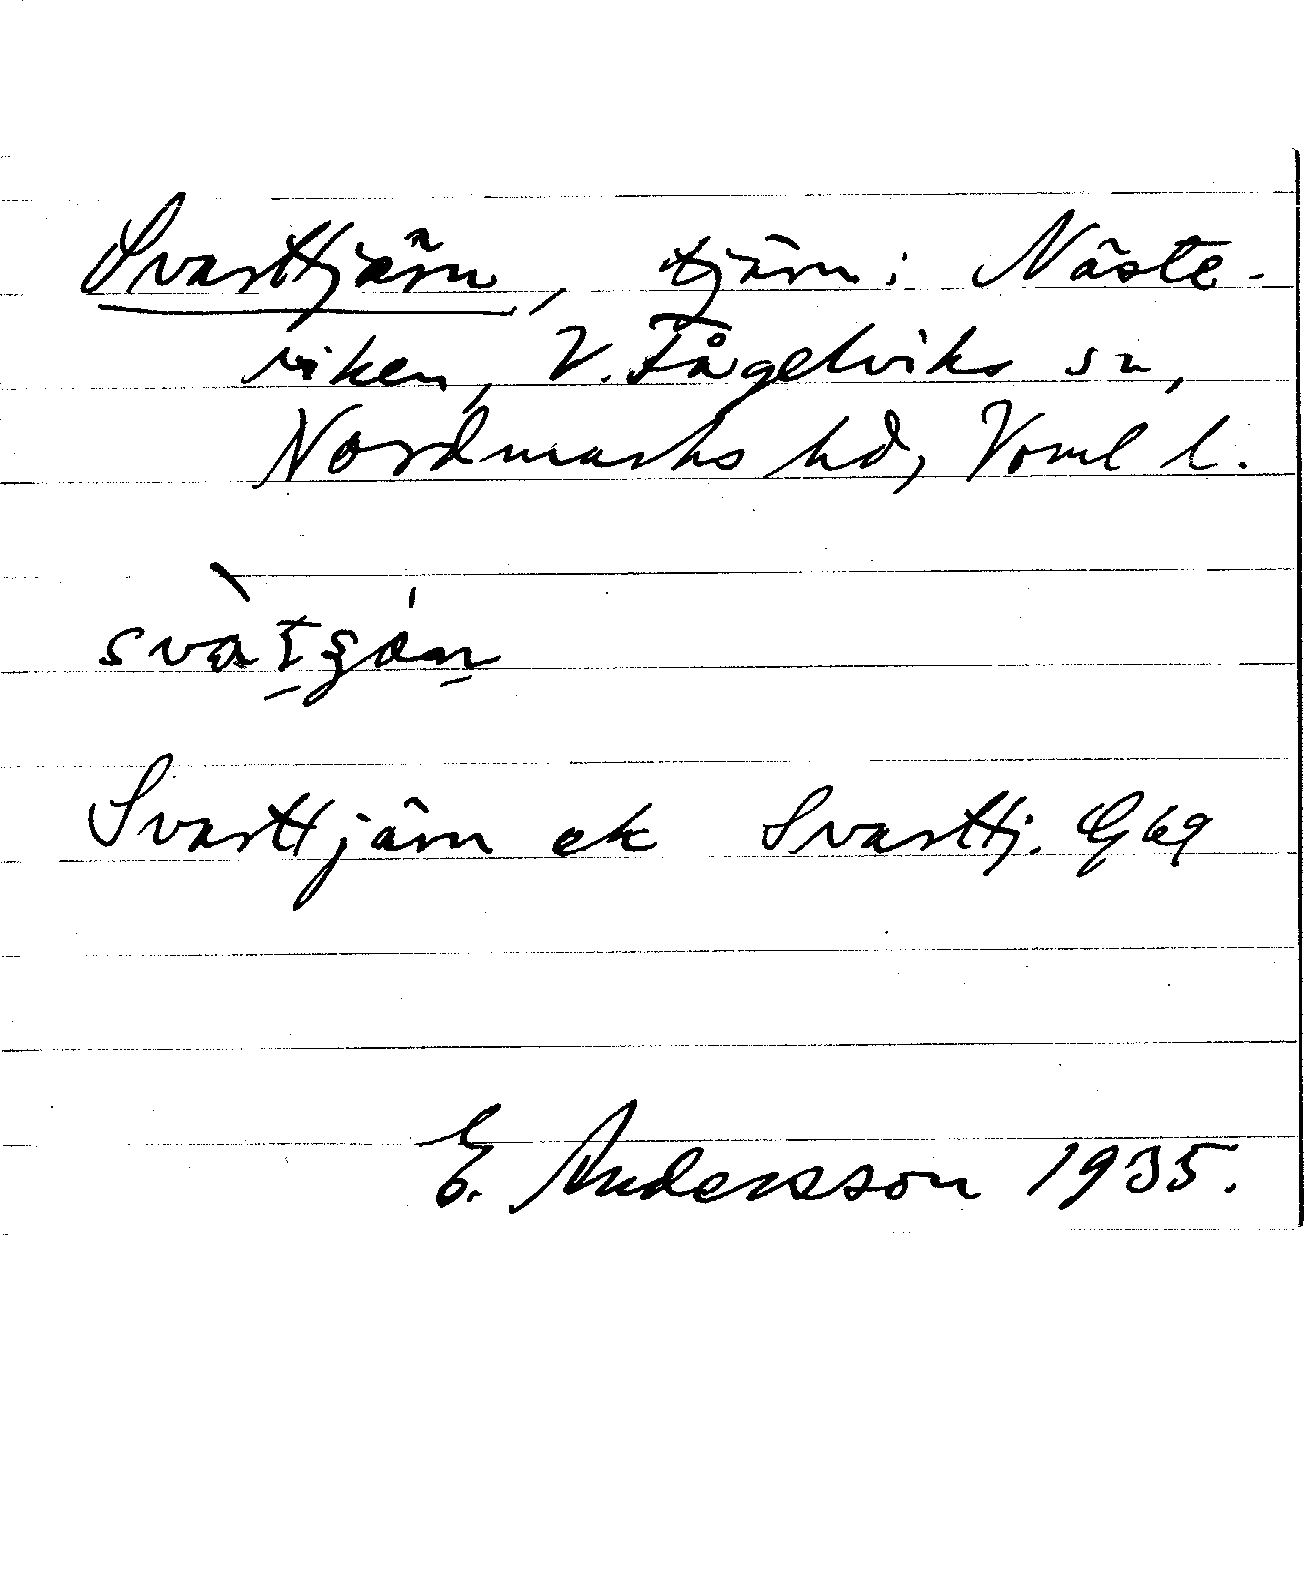 Svarttjärn, tjärn i Näste-
viken, V. Fågelviks sn,
Nordmarks hd, Vrml l.
Svarttjärn ek Svarttj. G 69
E. Andersson 1935.